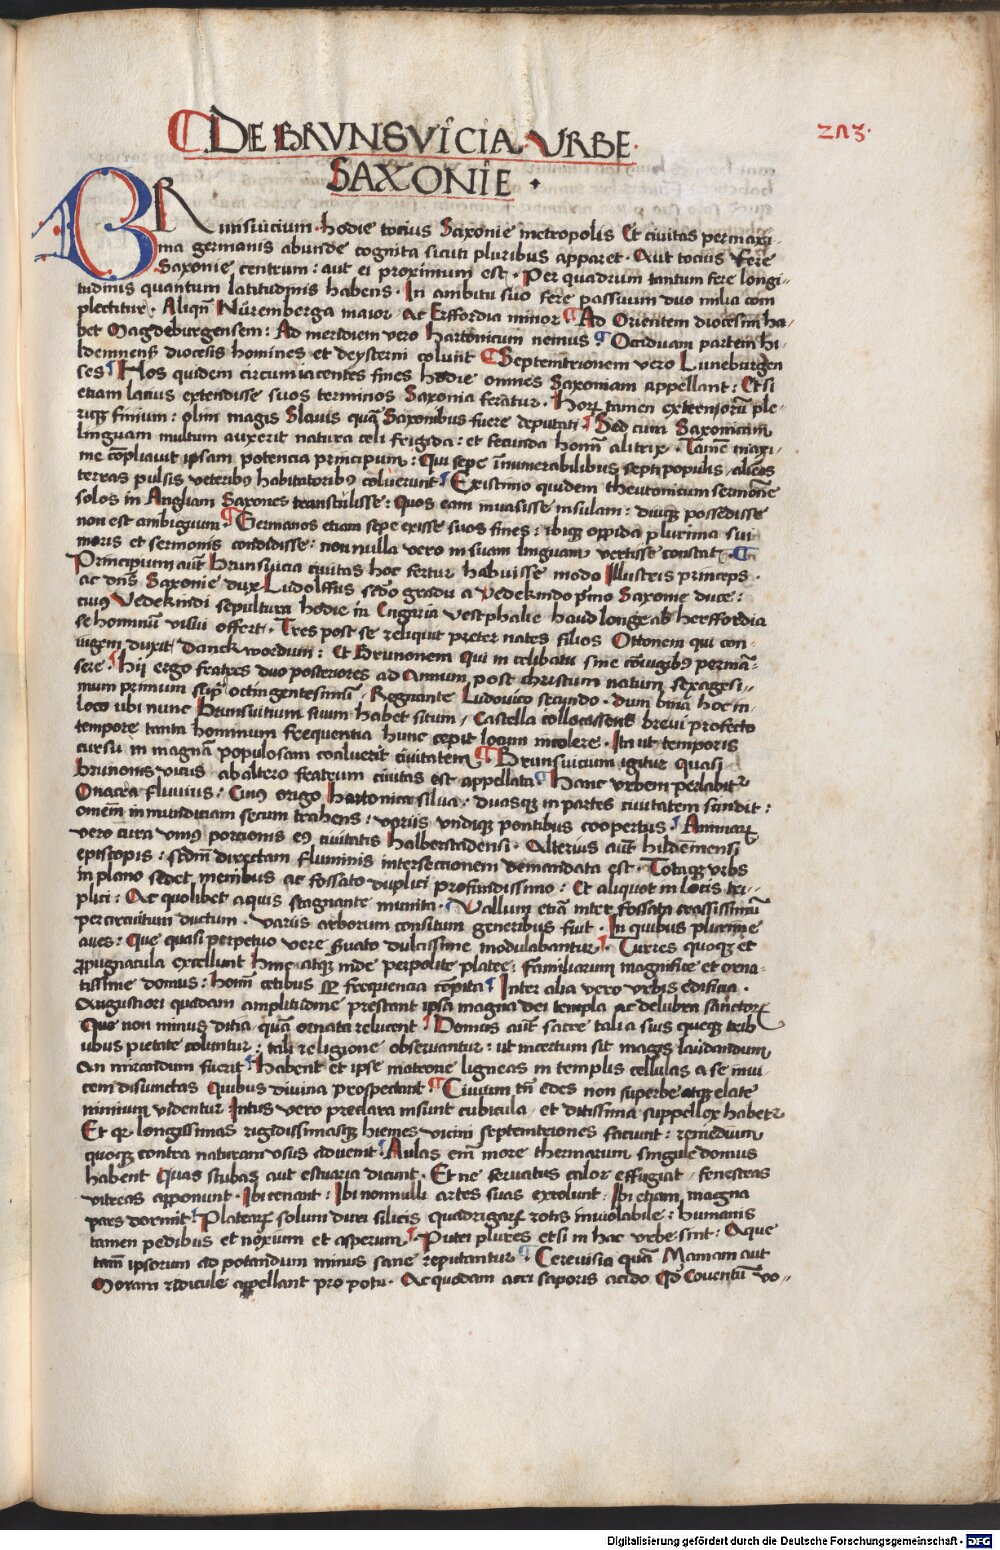 DE BRVNSVICIA VRBE
SAXONIE
2113.
BRunsuicium hodie tocius Saxonie metropolis Et civitas permaxi-
ma germanis abunde cognita sicuti pluribus apparet. Aut tocius fere
Saxonie centrum: aut ei proximum est. Per quadrum tantum fere longi-
tudinis quantum latitudinis habens. In ambitu suo fere passuum duo milia com
plectitur. Aliqñ Nüremberga maior ac Erffordia minor Ad Orientem diocesim ha-
bet Magdeburgensem: Ad meridiem vero hartonicum nemus Occiduam partem hi-
ldemnenß diocesis homines et deysterni colunt Septemtrionem vero Luneburgen
ses Hos quidem circumiacentes fines hodie omnes Saxoniam appellant: Etsi
etiam lacius extendisse suos terminos Saxonia feratur. tamen exteriorũ ple-
rique finium: olim magis Slauis quã Saxonibus fuere deputati Sed cum Saxonicam
linguam multum auxerit natura celi frigida: et fecunda homĩm altrix. Tamẽ maxi-
me cõpliavit ipsam potencia principum: Qui sepe ĩnumerabilibus septi populis alienas
terras pulsis veteribꝰ habitatoribꝰ coluerunt Existimo quidem theutonicum sermonẽ
solos in Angliam Saxones transtulisse: Quos eam inuasisse insulam: diuque possedisse
non est ambiguum Germanos etiam sepe exisse suos fines: ibique oppida plurima sui
moris et sermonis condidisse: nonnulla vero in suam linguam vertisse constat.
Principium aũt brunsuicia ciuitas hoc fertur habuisse modo Illustris princeps.
ac dñs Saxonie dux Ludolffus scdo gradu a Vedekindo pimo Saxonie duce:
cuiꝰ Vedekindi sepultura hodie in Engaria vestphalie haud longe ab herffordia
se hominũ visui offert. Tres post se reliquit preter nates filios Ottonem qui con-
iugem duxit danckwordum: Et Brunonem qui in celibatu sine cõiugibꝰ permã-
sere hij ergo fratres duo posteriores ad Annum post christum natum sexagesi-
mum primum supra octingentesimũ, Regnante Ludouico secundo. dum bina hoc in
loco ubi nunc Brunsuitium suum habet situm, Castella collocassent breui profecto
tempore tanta hominum frequentia hunc cepit locum incolere. Ita ut temporis
cursu in magnã populosam coaluerit ciuitatem Brunsuicum igitur quasi
brunonis vicus ab altero fratrum ciuitas est appellata Hanc vrbem perlabitur
Onacra fluuius: Cuiꝰ origo hartonica silua. duasque in partes ciuitatem scindit:
omẽm inmundiciam secum trahens: variis vndique pontibus coopertus. Animarum
vero cura vniꝰ porcionis eiꝰ ciuitatis halberstadensi. Alterius aũt hildẽmensi
episcopis: scdm directam fluminis intersectionem demandata est. Totaque vrbs
in plano sedet menibus ac fossato duplici profundissimo: Et aliquot in locis tri-
plici: Ac quolibet aquis stagnante munita. Vallum etiã inter fossata crassissimũ
per circuitum ductum. variis arborum consitum generibus fuit. In quibus plurime
aues: Que quasi perpetuo vere seruato dulcissime modulabantur. Turres quoque et
propugnacula excellunt hinc atque inde perpolite platee: familiarum magnifice et orna-
tissime domus: homĩm cetibus et frequencia cõpita Inter alia vero vrbis edificia.
Augustiori quadam amplitudine prestant ipsa magna dei templa ac delubra sanctorum
Que non minus ditia, quã ornata relucent Domus aũt sacre tali a suis queque trib
ubus pietate coluntur: tali religione obseruantur: ut incertum sit magis laudandum
an mirandum fuerit Habent et ipse matrone ligneas in templis cellulas a se inui
cem disiunctas Quibus diuina prospectant Ciuium tñ edes non superbe atque elate
nimium videntur Intus vero preclara insunt cubicula, et ditissima suppellex habetur
Et qr longissimas rigidissimasque hiemes vicini septemtriones faciunt: remedium
quoque contra naturam vsus aduenit Aulas em̃ more thermarum singule domus
habent Quas stubas aut estuaria dicunt. Et ne seruatus calor effugiat, fenestras
vitreas apponunt. Ibi cenant: Ibi nonnulli artes suas extolunt. Ibi etiam magna
pars dormit Platearum solum duri silicis quadrigarum rotis inuiolabile: humanis
tamen pedibus et noxium et asperum Putei plures etsi in hac vrbe sint: Aque
tam̃ ipsorum ad potandum minus sane reputantur Ceruisia quã Mamam aut
Moram ridicule appellant pro potu. Ac quadam acri saporis acido Qd Couentũ vo-
Digitalisierung gefördert durch die Deutsche Forschungsgemeinschaft - DFG